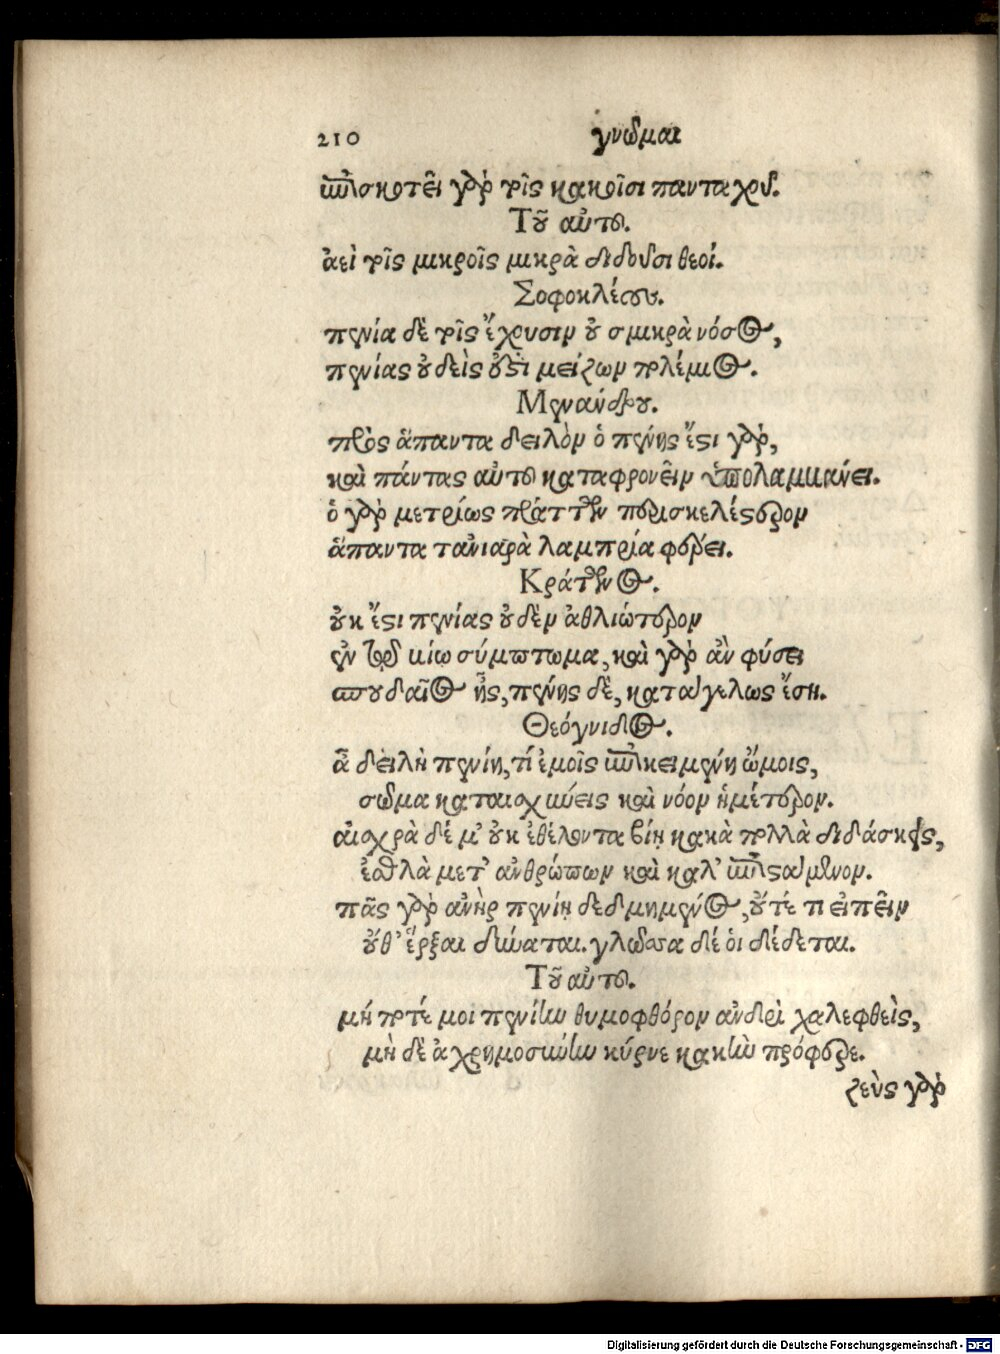 210 γνῶμαι
ἐπισκοτεῖ γὰρ τοῖς κακοῖσι πανταχοῦ.
Τοῦ αὐτοῦ.
ἀεὶ τοῖς μικροῖς μικρὰ διδοῦσι θεοί.
Σοφοκλέους.
πενία δὲ τοῖς ἔχουσιν οὐ σμικρὰ νόσος,
πενίας οὐδεὶς οὐστὶ μείζων πολέμιος.
Μενάνδρου.
πρὸς ἅπαντα δειλὸν ὁ πένης ἔστι γὰρ,
καὶ πάντας αὐτοῦ καταφρονεῖν ὑπολαμβάνει.
ὁ γὰρ μετρίως πράττων περισκελέστερον
ἅπαντα τἀνιαρὰ λαμπρία φέρει.
Κράτητος.
οὐκ ἔστι πενίας οὐδὲν ἀθλιώτερον
ἐν τῷ βίῳ σύμπτωμα, καὶ γὰρ ἂν φύσει
σπουδαῖος ᾖς, πένης δὲ, κατάγελως ἔσῃ.
Θεόγνιδος.
ἆ δειλὴ πενίη, τί ἐμοῖς ἐπικειμένη ὤμοις,
σῶμα καταισχύνεις καὶ νόον ἡμέτερον.
αἰσχρὰ δέ μ' οὐκ ἐθέλοντα βίῃ κακὰ πολλὰ διδάσκεις,
ἐσθλὰ μετ' ἀνθρώπων καὶ καλ' ἐπιστάμενον.
πᾶς γὰρ ἀνὴρ πενίῃ δεδμημένος, οὔτέ τι εἰπεῖν
οὔθ' ἔρξαι δύναται. γλῶσσα δέ οἱ δέδεται.
Τοῦ αὐτοῦ.
μή ποτέ μοι πενίην θυμοφθόρον ἀνδρὶ χαλεφθεὶς,
μὴ δὲ ἀχρημοσύνην κύρνε κακὴν πρόφερε.
ζεὺς γὰρ
Digitalisierung gefördert durch die Deutsche Forschungsgemeinschaft - DFG